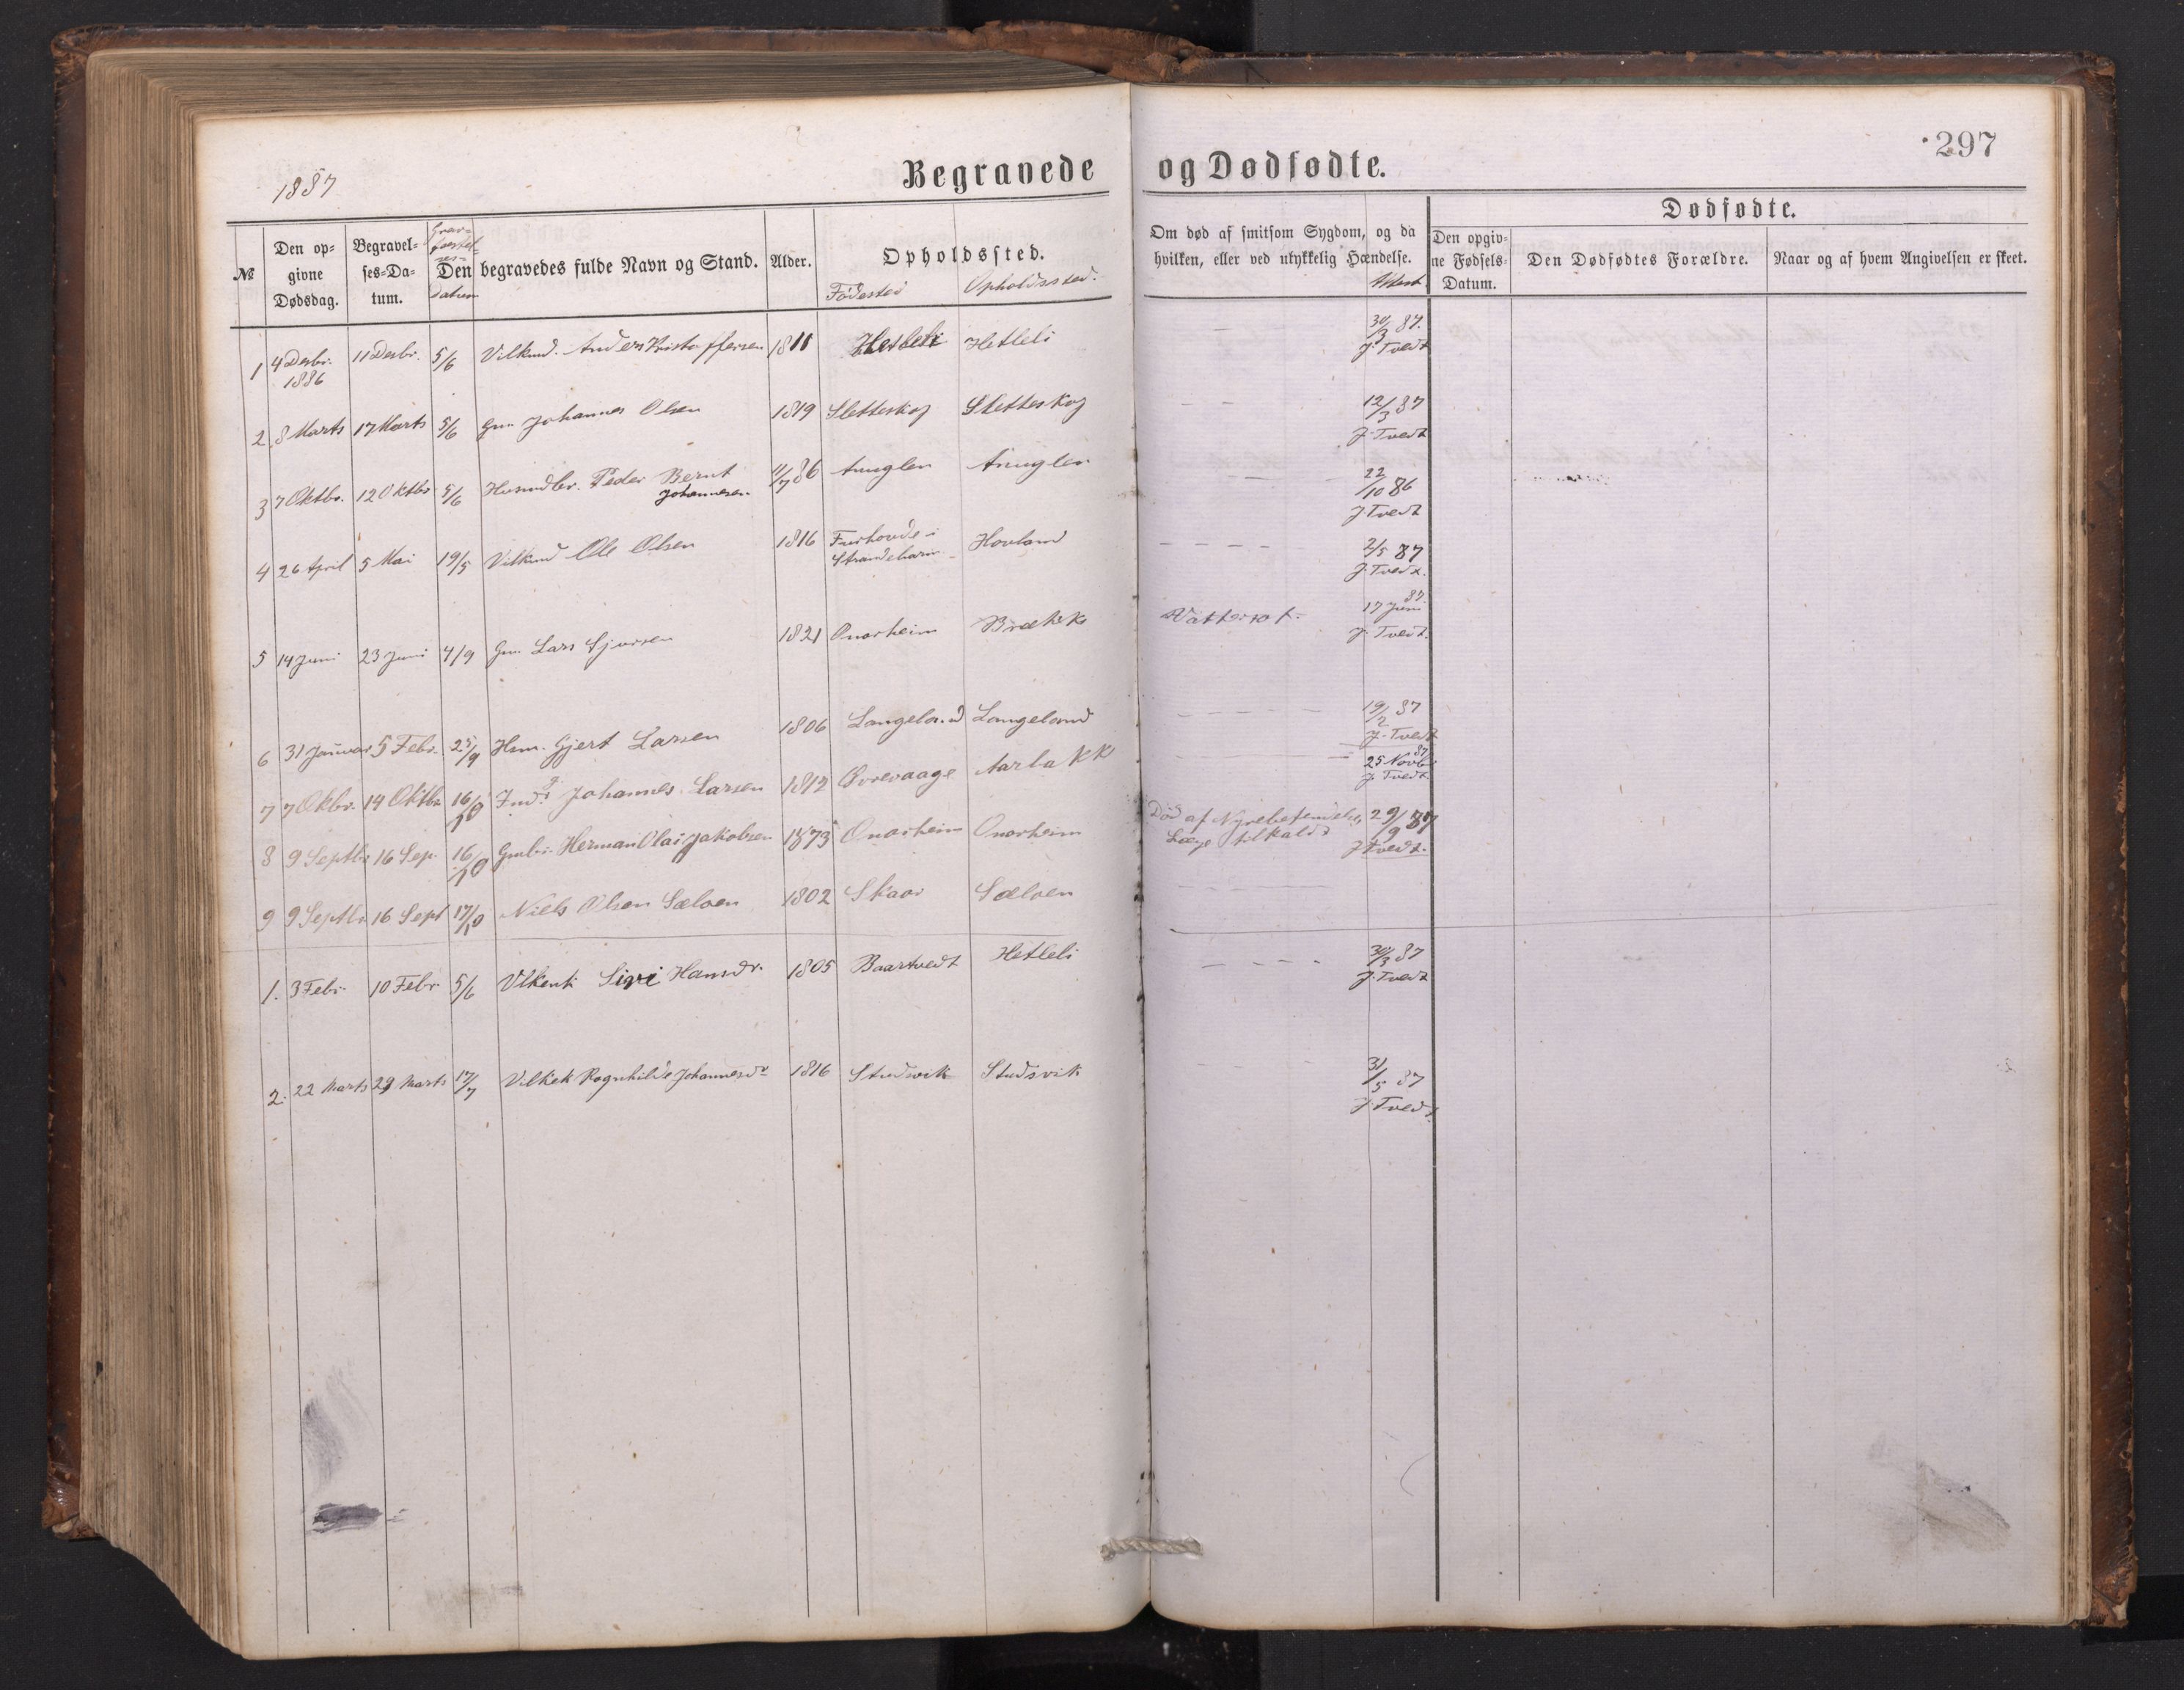 1887
Begravede og Dødfødte.
297
№ Den opgivne Dødsdag. Begravelses-Datum. Den begravedes fulde Navn og Stand. Alder. Opholdssted. Fødested Opholdssted.
Om død af smitsom Sygdom, og da hvilken, eller ved ulykkelig Hændelse. Attest.
Dødfødte.
Den opgivne Fødsels-Datum. Den Dødfødtes Forældre. Naar og af hvem Angivelsen er skeet.
1 4 Desbr. 1886 11 Desbr. 5/6 Vilkmd. Anders Kristoffersen 1811 Hetleli Hetleli – – 30/3 87. J. Tvedt
2 8 Marts 17 Marts 5/6 Gm. Johannes Olsen 1819 Sletteskog Sletteskog – – 12/3 87 J. Tvedt
3 7 Oktbr. 12 Oktbr 5/6 Husmdbr. Peder Bernt Johannesen 11/7 86 Anuglen Anuglen – – 22/10 86 J. Tvedt
4 26 April 5 Mai 19/5 Vilkmd Ole Olsen 1816 Furhovde i Strandebarm Hovland – – – – 2/5 87 J. Tvedt.
5 14 Juni 23 Juni 4/9 Gm. Lars Sjursen 1821 Onarheim Brække Vattersot. 17 Juni 87. J. Tvedt.
6 31 Januar 5 Febr. 25/9 Hsm. Gjert Larsen 1806 Langeland Langeland – – – – 19/2 87 J. Tvedt
7 7 Okbr. 14 Oktbr 16/10 Johannes Larsen 1812 Øvrevaage Aarbakke 25 Novbr 87 J Tvedt
8 9 Septbr 16 Sep. 16/10 Gmbr. Herman Olai Jakobsen 1873 Onarheim Onarheim Død af Nyrebetændelse, Læge tilkaldt 29/9 87 J Tvedt.
9 9 Septbr 16 Sept 17/10 Niels Olsen Sæløen 1802 Skaar Sæløen – – – – –
1. 3 Febr. 10 Febr 5/6 Vlkenk Siri Hansdr. 1805 Baartvedt Hetleli – – – – 30/3 87 J. Tvedt
2. 22 Marts 29 Marts 17/7 Vilkek Ragnhilde Johannesdr 1816 Studsvik Studsvik – – 31/5 87 J. Tvedt.